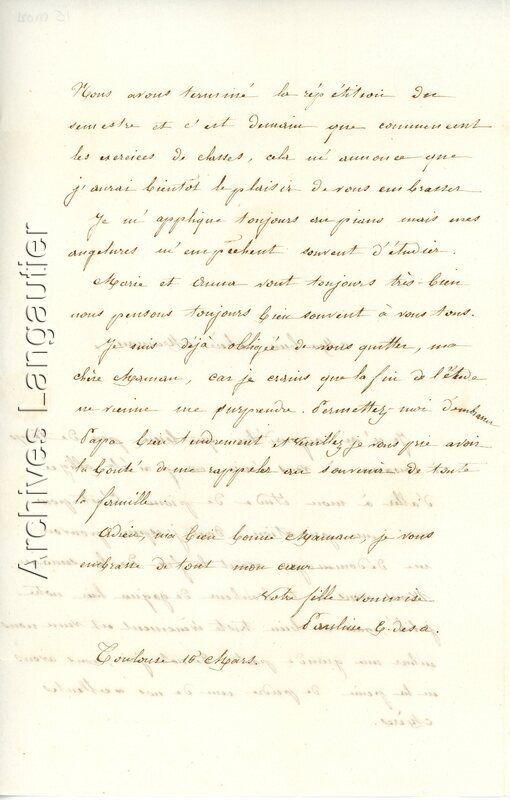 Nous avons terminé la répétition du
semestre et c'est demain que commencent
les exercices de classes, cela m'annonce que
j'aurai bientôt le plaisir de vous embrasser
Je m'applique toujours au piano mais mes
angelures m'empêchent souvent d'étudier.
Marie et Anna vont toujours très-bien
nous pensons toujours bien souvent à vous tous.
Je suis déjà obligée de vous quitter, ma
chère Maman, car je crains que la fin de l'étude
ne vienne me surprendre. Permettez-moi d'embrasser
Papa bien tendrement et veuillez je vous prie avoir
la bonté de me rappeler au souvenir de toute
la famille
Adieu, ma bien bonne Maman, je vous
embrasse de tout mon cœur
Votre fille soumise
Pauline G. des a.
Toulouse 16 Mars.
Archives Langautier